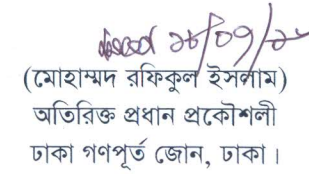 (মোহাম্মদ রফিকুল ইসলাম)
অতিরিক্ত প্রধান প্রকৌশলী
ঢাকা গণপূর্ত জোন, ঢাকা।